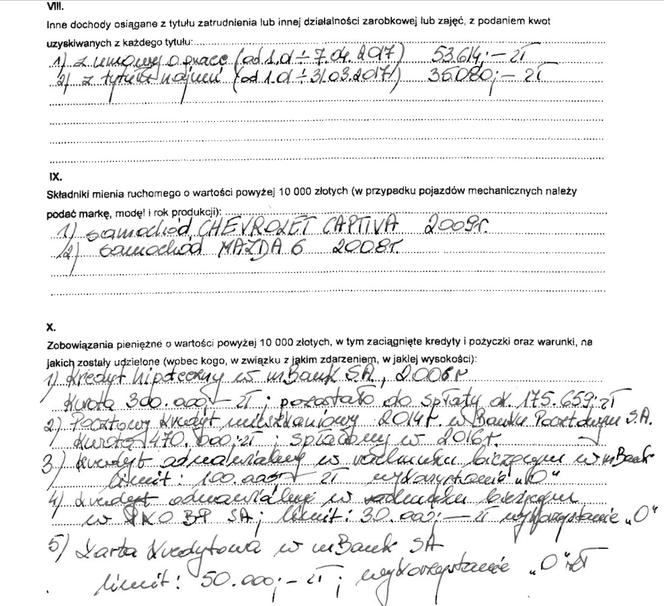 VIII.
Inne dochody osiągane z tytułu zatrudnienia lub innej działalności zarobkowej lub zajęć, z podaniem kwot
uzyskiwanych z każdego tytułu:
1) z umowy o pracę (od 1.01 ÷ 7.04.2017) 53.614,- zł
2) z tytułu najmu (od 1.01 ÷ 31.03.2017) 36.080,- zł
IX.
Składniki mienia ruchomego o wartości powyżej 10 000 złotych (w przypadku pojazdów mechanicznych należy
podać markę, model i rok produkcji):
1) samochód CHEVROLET CAPTIVA 2009r.
2) samochód MAZDA 6 2008r.
X.
Zobowiązania pieniężne o wartości powyżej 10 000 złotych, w tym zaciągnięte kredyty i pożyczki oraz warunki, na
jakich zostały udzielone (wobec kogo, w związku z jakim zdarzeniem, w jakiej wysokości):
1) Kredyt hipoteczny w mBank S.A., 2006r
kwota 300.000,- zł; pozostało do spłaty ok. 175.659,-zł
2) Pocztowy Kredyt mieszkaniowy 2014r. w Banku Pocztowym S.A.
kwota 470.000,-zł; spłacony w 2016r.
3) kredyt odnawialny w rachunku bieżącym w mBank
limit: 100.000,- zł wykorzystanie "0"
4) kredyt odnawialny w rachunku bieżącym
w PKO BP SA; limit: 30.000,- zł wykorzystanie „0"
5) Karta kredytowa w mBank SA
limit: 50.000,- zł; wykorzystanie „0" zł